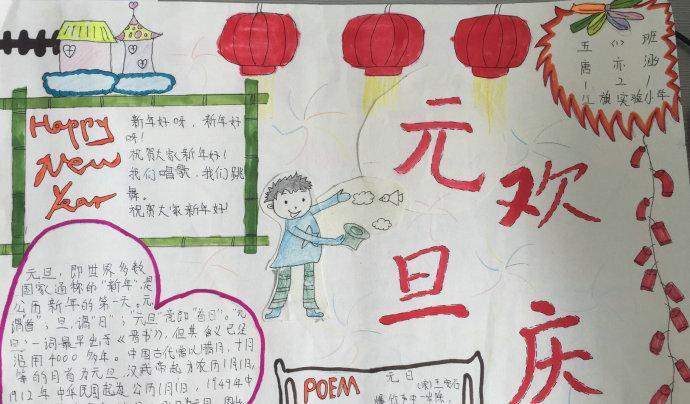 五(2)班
唐亦涵
八旗实验小学
元旦
欢庆
Happy
New
Year
新年好呀,新年好
呀!
祝贺大家新年好!
我们唱歌,我们跳
舞。
祝贺大家新年好!
元旦,即世界多数
国家通称的“新年”,是
公历新年的第一天。元
谓“首”;旦,谓“日”;“元旦”意即“首日”。“元
旦”一词最早出于《晋书》,但其含义已经
沿用4000多年。中国古代曾以腊月、十月
等的月首为元旦,汉武帝起为农历1月1日,
1912年中华民国起为公历1月1日,1949年中
POEM
元日
(宋)王安石
爆竹声中一岁除,